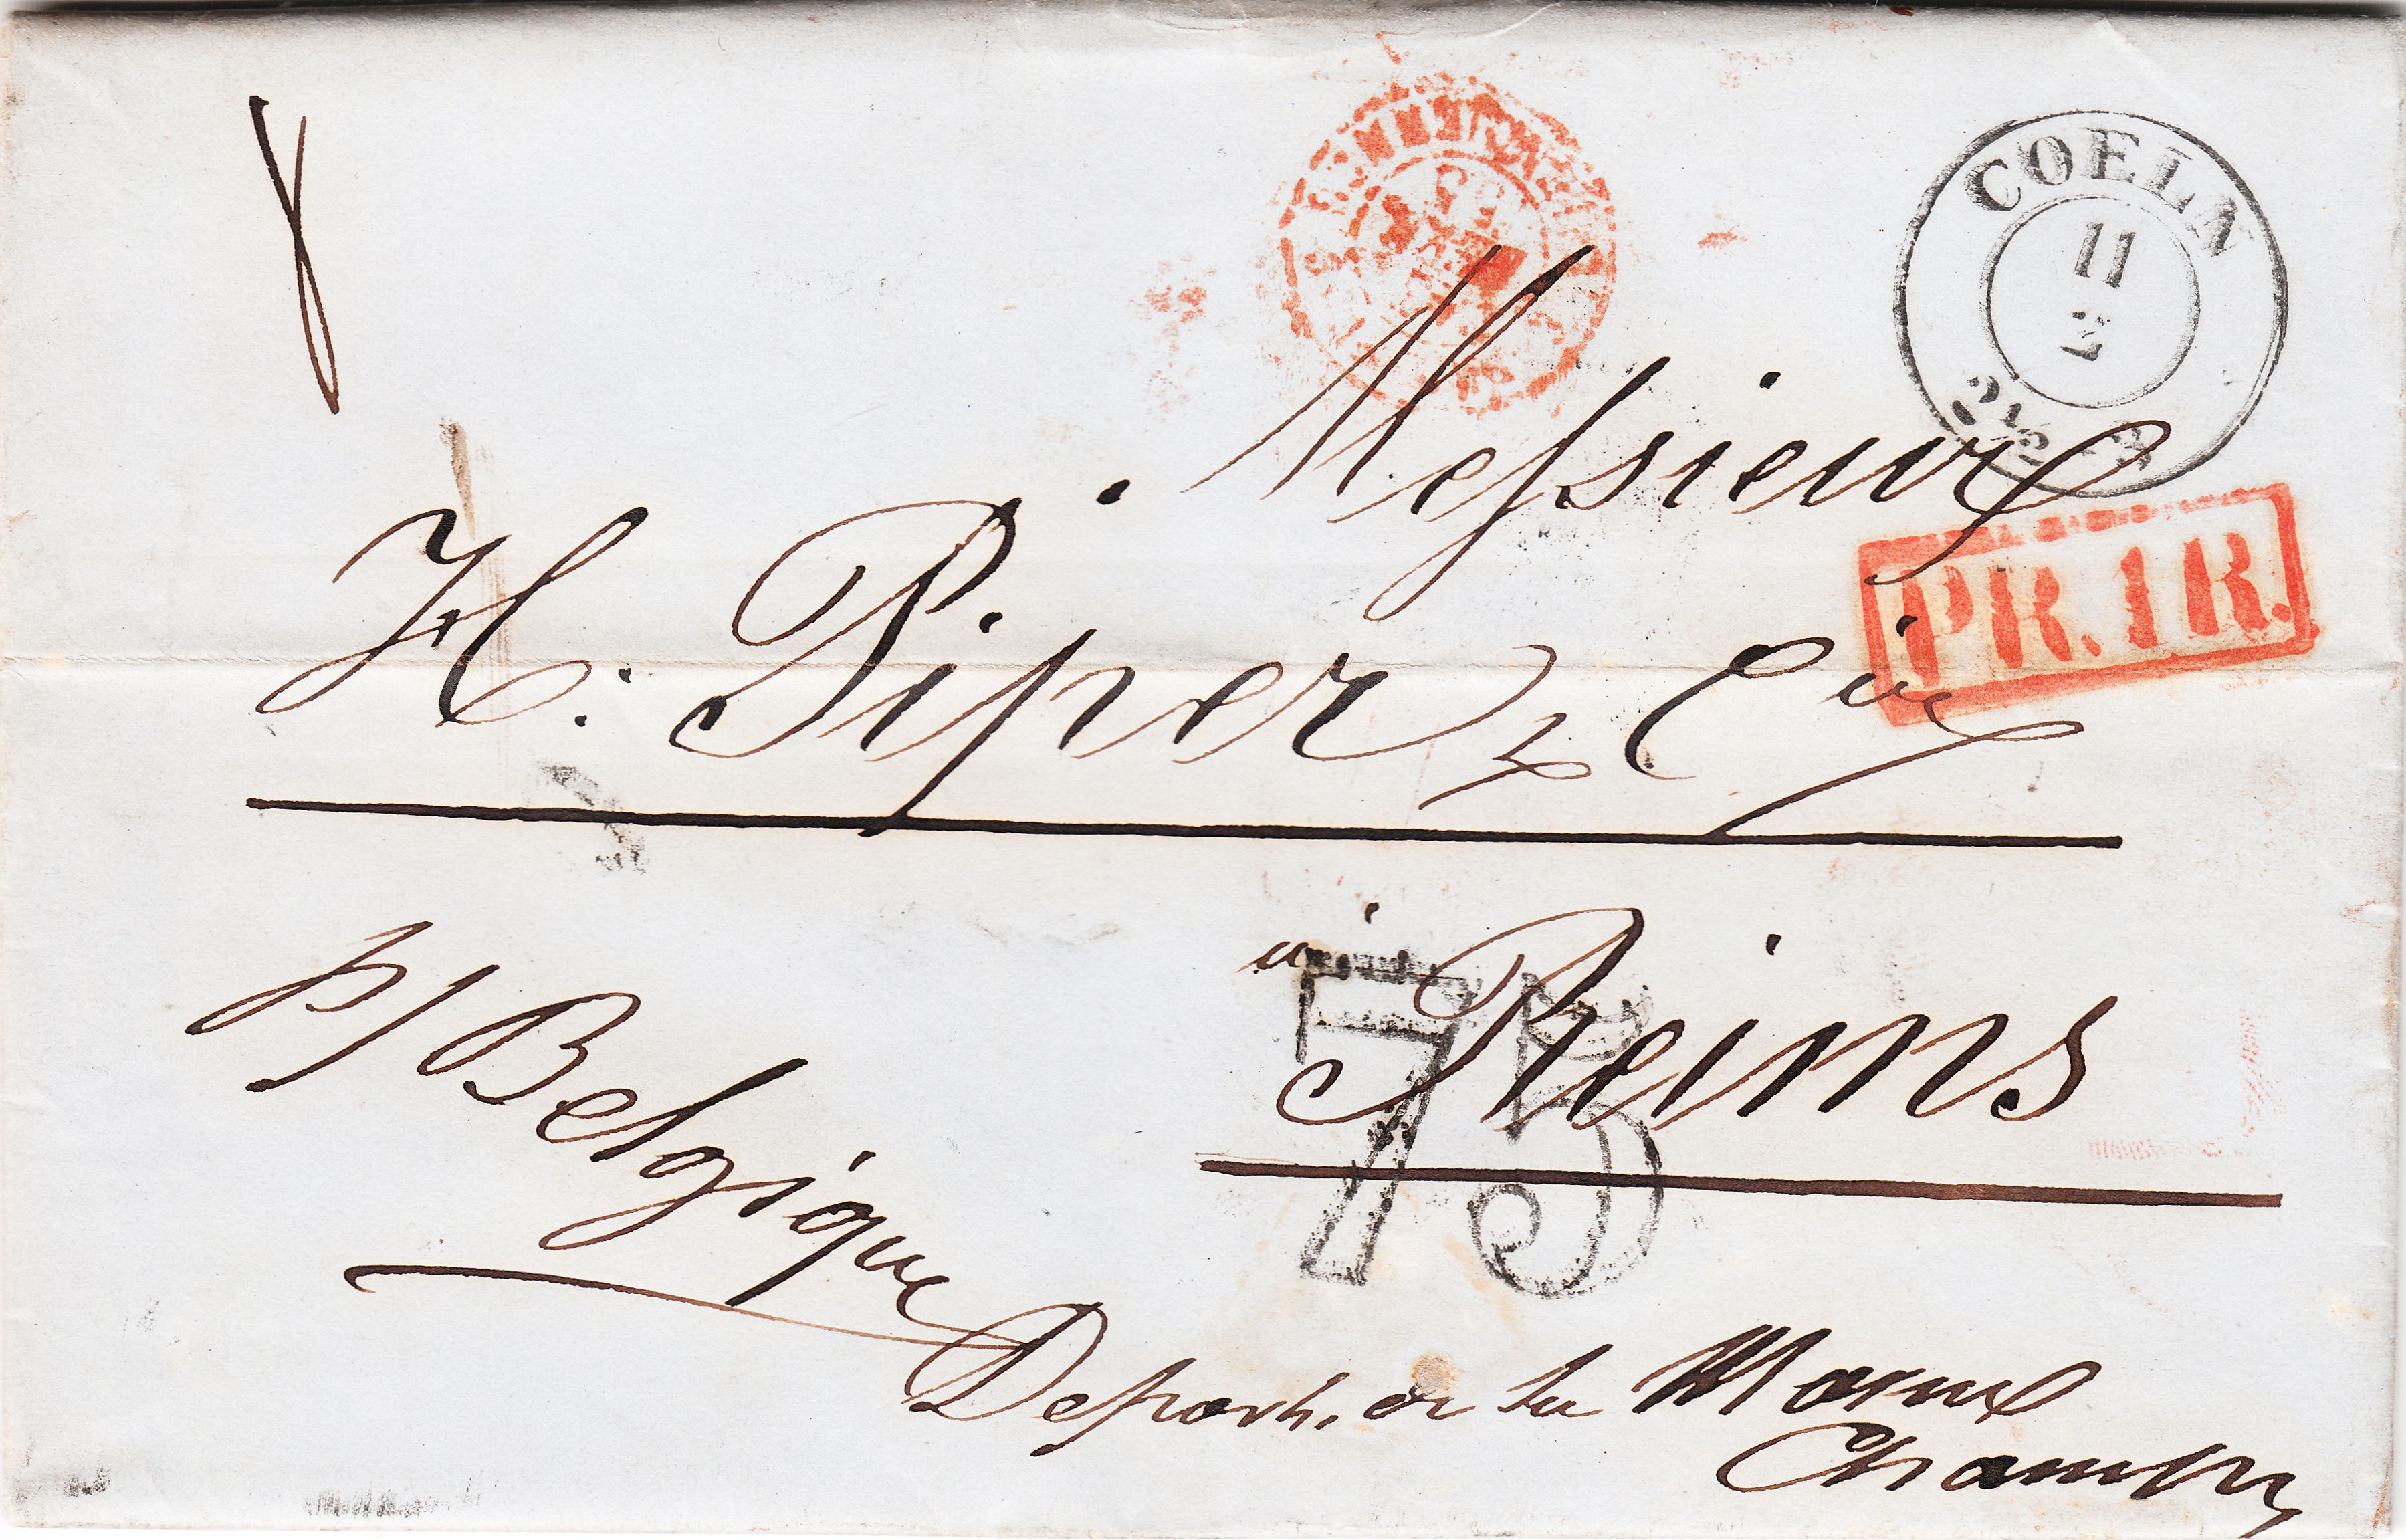 COELN
11
2
Messieurs
PR. 1 R.
H: Piper & Cie
à Reims
75
p/ Belgique
Depart. de la Marne
Champ